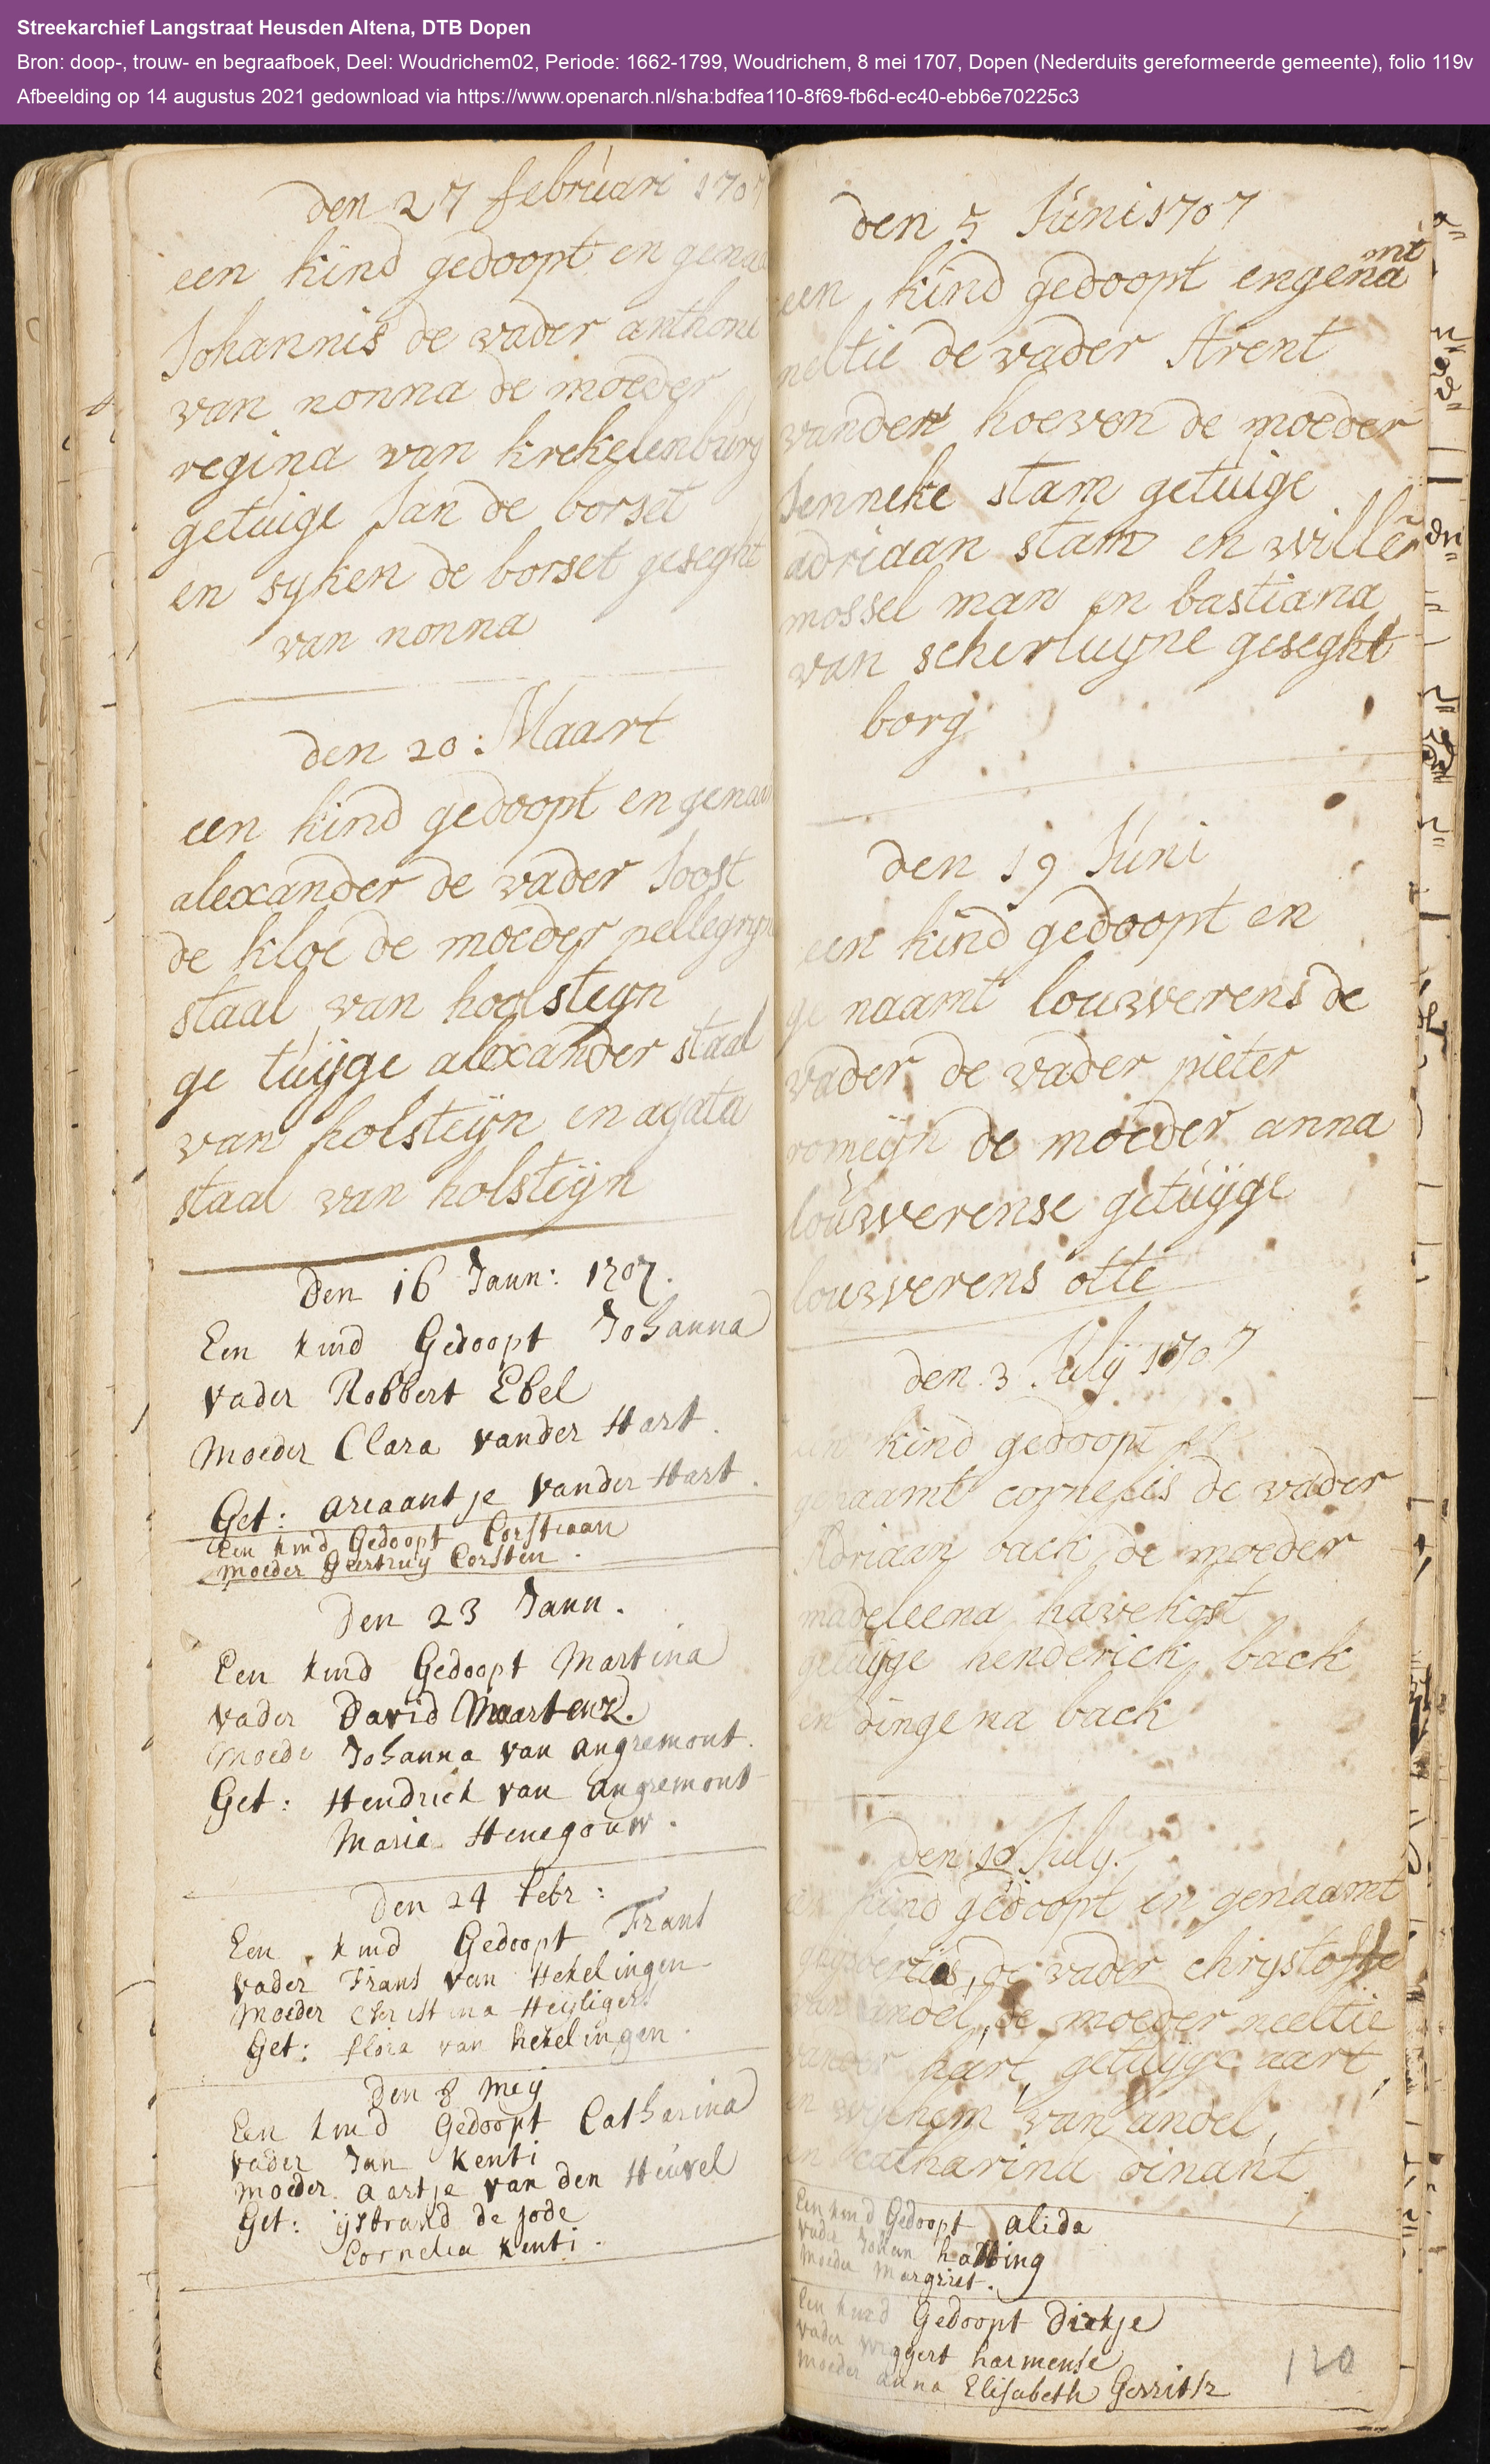 Streekarchief Langstraat Heusden Altena, DTB Dopen
Bron: doop-, trouw- en begraafboek, Deel: Woudrichem02, Periode: 1662-1799, Woudrichem, 8 mei 1707, Dopen (Nederduits gereformeerde gemeente), folio 119v
Afbeelding op 14 augustus 2021 gedownload via https://www.openarch.nl/sha:bdfea110-8f69-fb6d-ec40-ebb6e70225c3
den 27 februari 1707
een kind gedoopt en gena
Johannis de vader anthoni
van nonna de moeder
regina van krekelenburg
getuige Jan de borset
en syken de borset geseght
van nonna
den 20: Maart
een kind gedoopt en genaa
alexander de vader Joost
de kloe de moeder pellegryn
staal van hoolsteyn
ge tuijge alexander staal
van holsteijn en agata
staal van holsteijn
Den 16 Jann: 1707.
Een kind Gedoopt Johanna
vader Robbert Ebel
Moeder Clara vander Hart.
Get: Ariaantje vander Hart.
Een kind Gedoopt Corstiaan
Moeder Geertruy Corsten.
Den 23 Jann.
Een kind Gedoopt Martina
vader David Maartenz.
Moede Johanna van Angremont.
Get: Hendrick van Angremont
Maria Henegouw.
Den 24 Febr:
Een kind Gedoopt Frans
vader Frans van Hekelingen
Moeder Christina Heyligers
Get: flora van hekelingen.
Den 8 Meij
Een kind Gedoopt Catharina
vader Jan Kenti
Moeder Aartje van den Heuvel
Get: ijsbrand de Jode
Cornelia Kenti.
den 5 Juni 1707
een kind gedoopt en genamt
neltie de vader Arent
vanden hoeven de moeder
Jenneke stam getuige
adriaan stam en willem̃
mossel man en bastiana
van scherluyne geseght
borg
den 19 Juni
een kind gedoopt en
ge naamt louwerens de
vader de vader pieter
romeijn de moeder anna
louwerense getuijge
louwerens otte
den 3 Julij 1707
een kind gedoopt en
genaamt cornelis de vader
Adriaan back de moeder
madeleena havekost
getuijge henderick back
en dingena back
Den 10 July.
een kind gedoopt en genaamt
gijsbertus, de vader chrystoffe
van andel, de moeder neeltie
vander hart, getuijge aart,
en wychem van andel,
en catharina dinant
Een kind Gedoopt Alida
vader Johan hatting
Moeder Margriet.
Een kind Gedoopt Dirkje
vader wiggert harmense
Moeder anna Elisabeth Gerrits
120